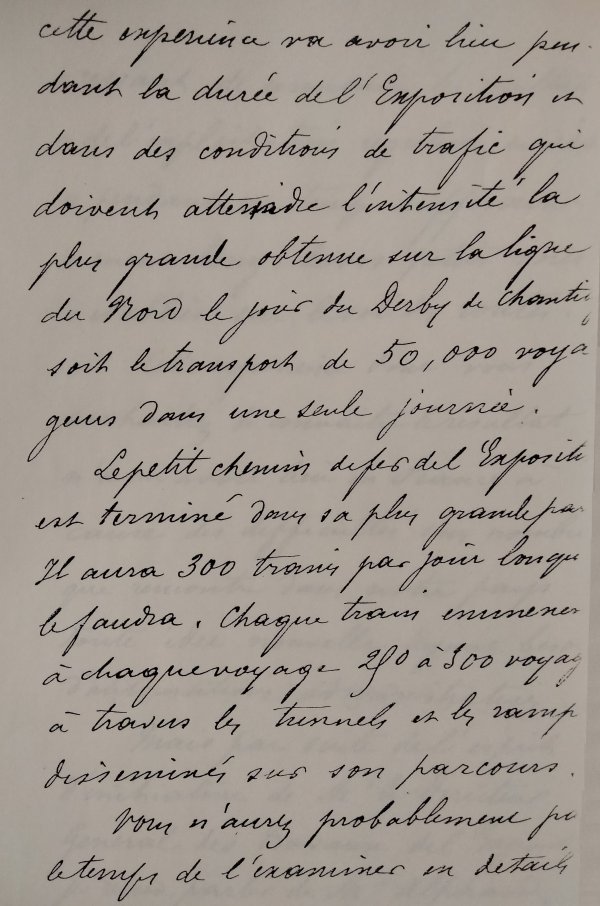 cette experience va avoir lieu pen-
dant la durée de l'Exposition et
dans des conditions de trafic qui
doivent atteindre l'intensité la
plus grande obtenue sur la ligne
du Nord le jour du Derby de Chantil
soit le transport de 50,000 voya
geurs dans une seule journée.
Le petit chemin de fer de l'Expositi
est terminé dans sa plus grande par
Il aura 300 trains par jour lorsque
le faudra. Chaque train emmener
à chaque voyage 250 à 300 voyag
à travers les tunnels et les ramp
disseminés sur son parcours.
Vous n'aurez probablement pa
le temps de l'examiner en details